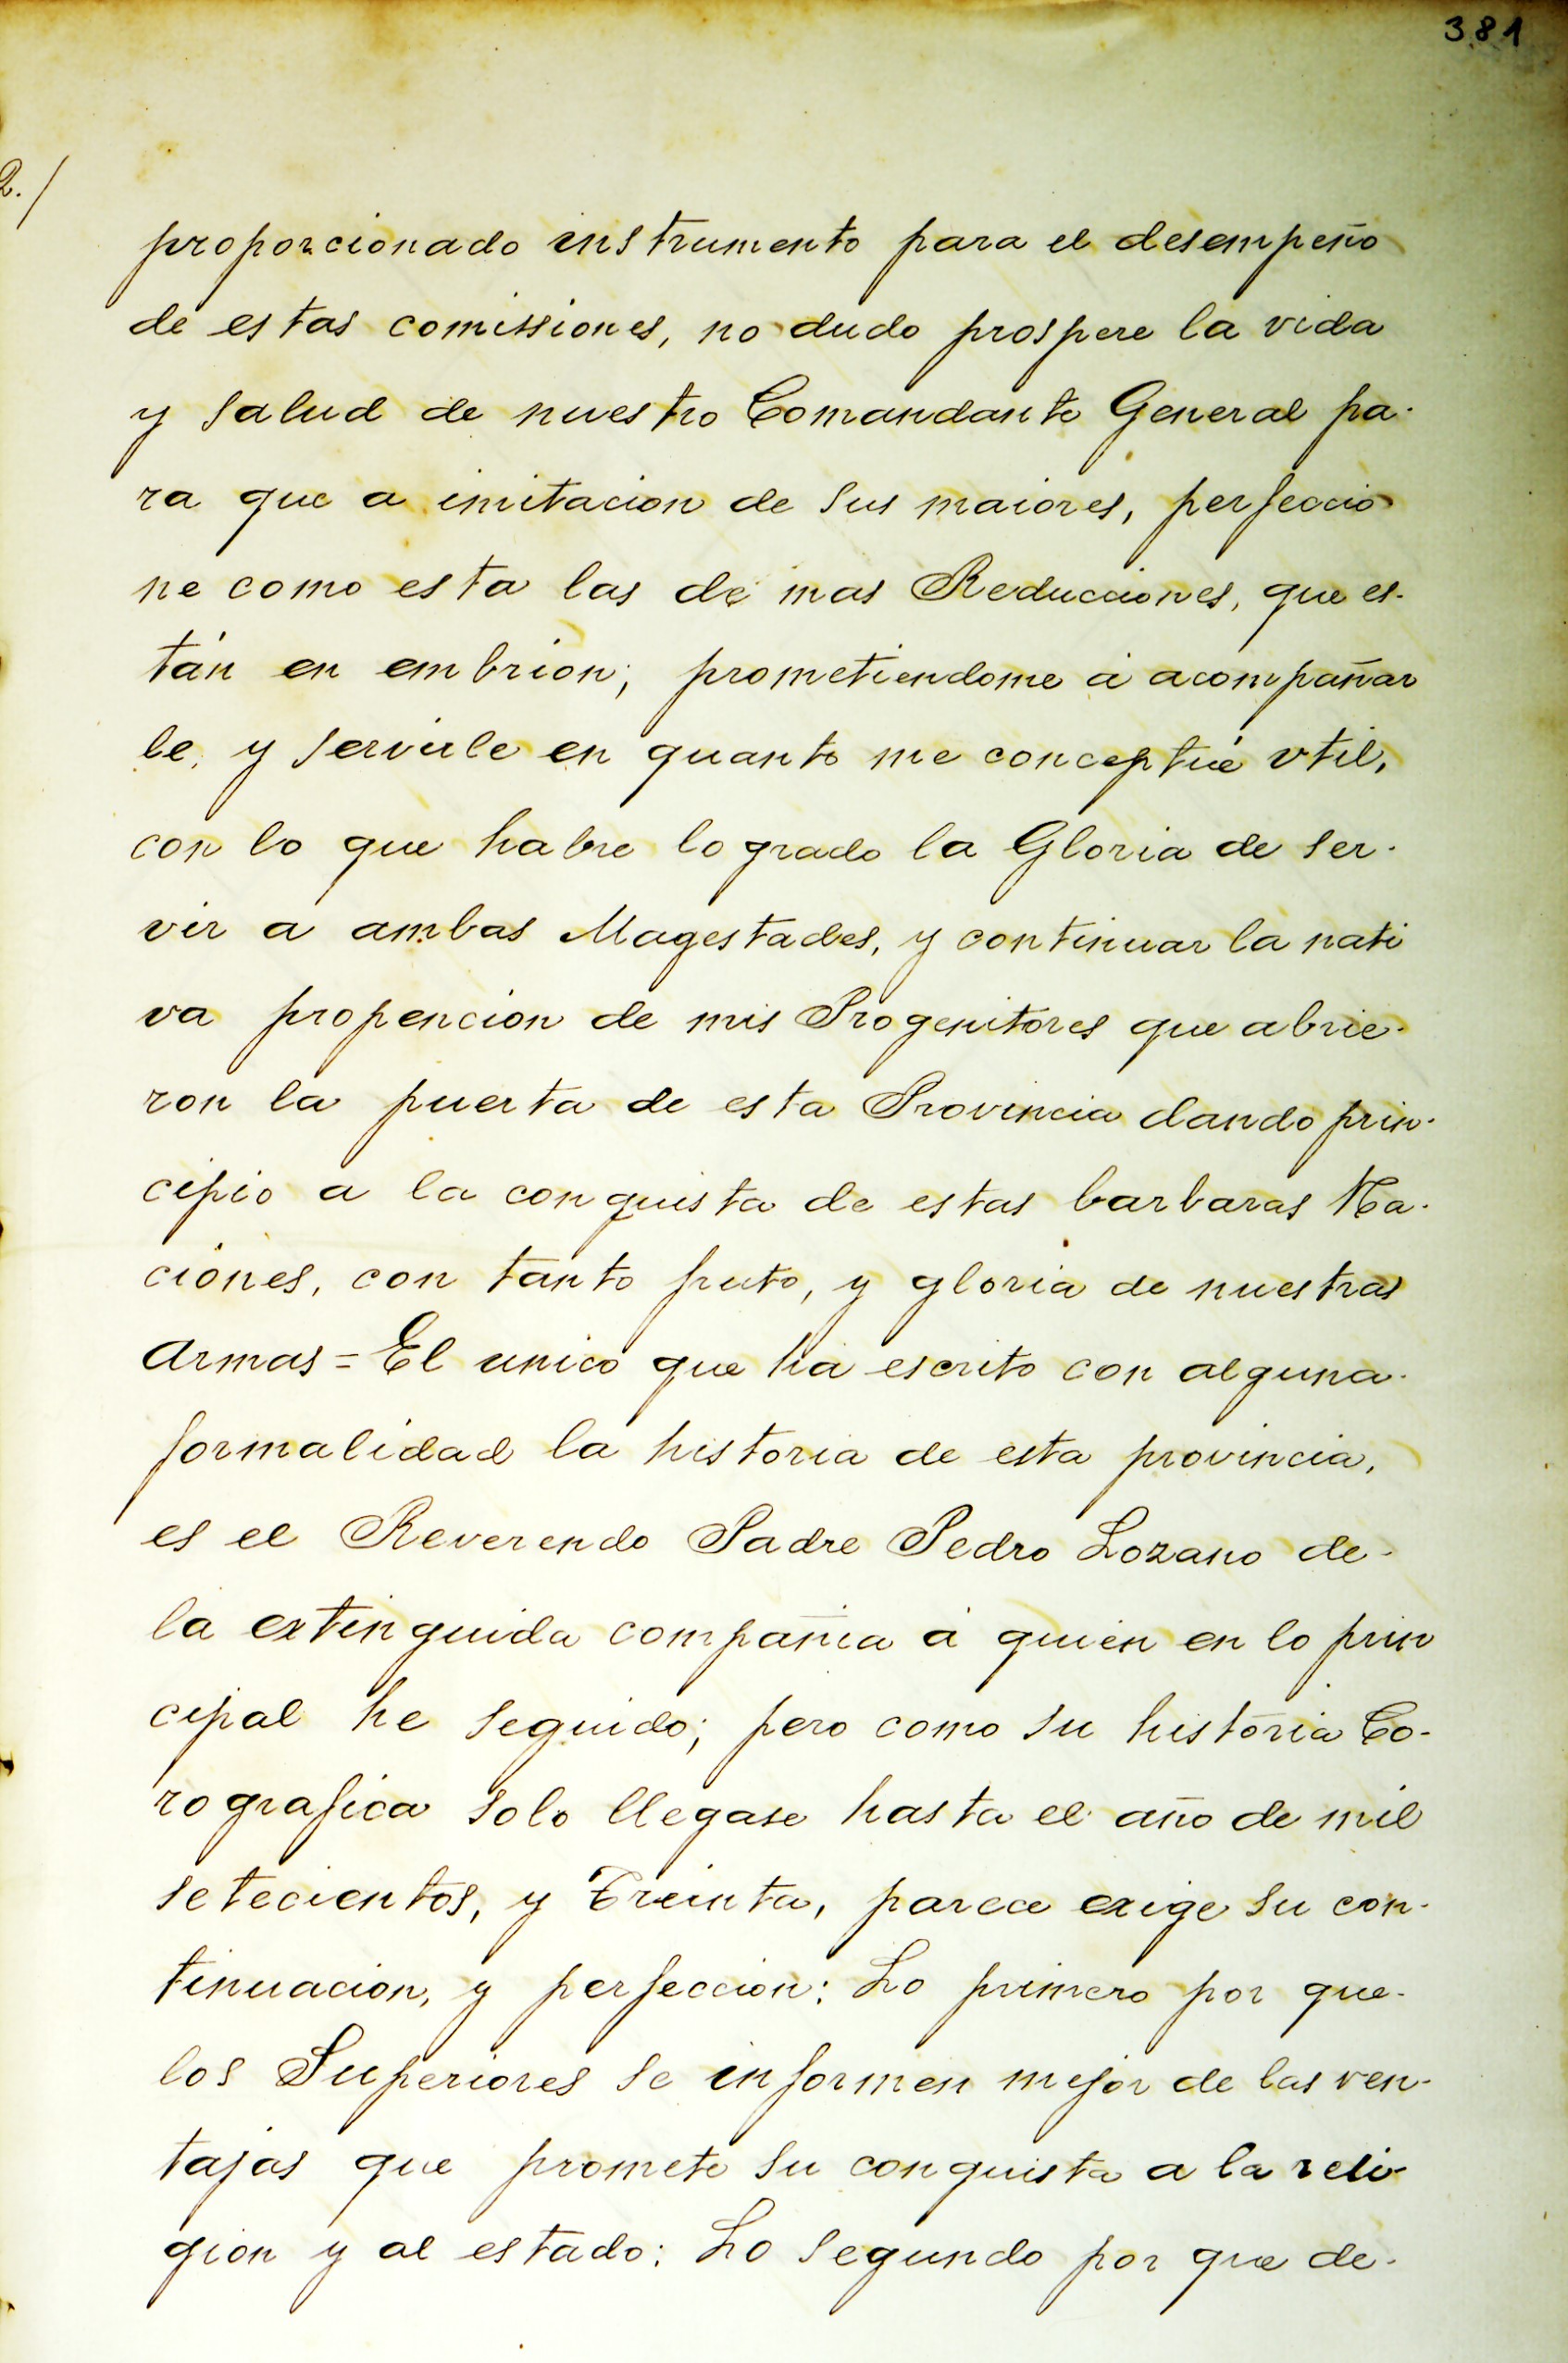 381
2./
proporcionado instrumento para el desempeño
de estas comissiones, no dudo prospere la vida
y salud de nuestro Comandante General pa-
ra que a imitacion de sus maiores, perfeccio
ne como esta las de mas Reducciones, que es-
tán en embrion; prometiendome á acompañar
le, y servirle en quanto me conceptúe vtil,
con lo que habre logrado la Gloria de ser-
vir a ambas Magestades, y continuar la nati
va propencion de mis Progenitores que abrie-
ron la puerta de esta Provincia dando prin-
cipio a la conquista de estas barbaras Na-
ciones, con tanto fruto, y gloria de nuestras
armas = El unico que ha escrito con alguna-
formalidad la historia de esta provincia,
es el Reverendo Padre Pedro Lozano de-
la extinguida compañia á quien en lo prin
cipal he seguido; pero como su historia Co-
rografica solo llegase hasta el año de mil
setecientos, y treinta, parece exige su con-
tinuacion, y perfeccion: Lo primero por que-
los Superiores se informen mejor de las ven-
tajas que promete su conquista a la reli-
gion y al estado: Lo segundo por que de-